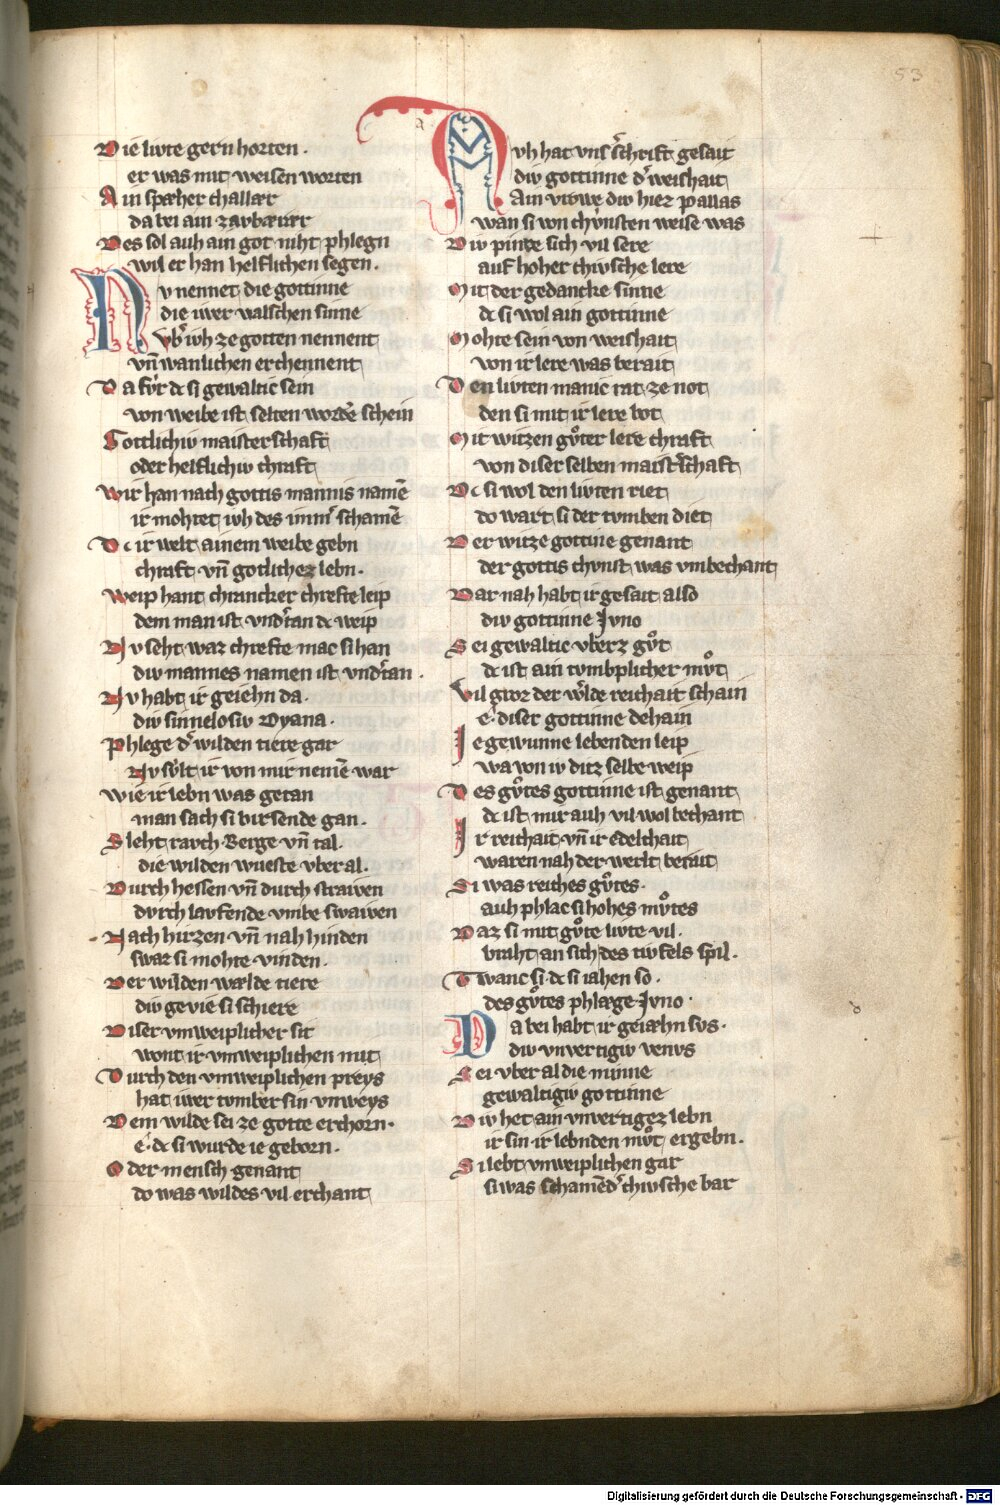 53
Die livte gern horten .
er was mit weisen worten
Ain spæher challær
da bei ain zavbærær
Des sol auh ain got niht phlegn
wil er han helflichen segen .
Nv nennet die gottinne
die iwer walschen sinne
Vb̉ iwh ze gotten nennent
vn̄ wanlichen erchennent
Da fvͤr dc si gewaltic sein
von weibe ist selten wordē schein
Gottlichiv maisterschaft
oder helflichiv chraft
Wir han nach gottis mannis namē
ir mohtet iwh des imm̉ schamē
Dc ir welt ainem weibe gebn
chraft vn̄ gotlichez lebn .
Weip hant chrancker chrefte leip
dem man ist vnd̉tan dc weip
Nv seht waz chrefte mac si han
div mannes namen ist vnd̉tan .
Nv habt ir geiehn da .
div sinnelosiv Dyana .
Phlege d̉ wilden tiere gar
Nv svlt ir von mir nemē war
Wie ir lebn was getan
man sach si birsende gan .
Sleht ravch Berge vn̄ tal .
die wilden wueste vber al .
Durch hessen vn̄ durch straiven
dvrch lavfende vmbe swaiven
Nach hirzen vn̄ nah hinden
swaz si mohte vinden .
Der wilden wælde tiere
div gevie si schiere
Diser vnweiplicher sit
wont ir vnweiplichen mit
Durch den vnweiplichen preys
hat iwer tvmber sin vnweys
Dem wilde sei ze gotte erchorn .
e . dc si wurde ie geborn .
Oder mensch genant
do was wildes vil erchant
Avh hat vns schrift gesait
div gottinne d̉ weishait
Ain vrowe div hiez pallas
wan si von chvnsten weise was
Div pinge sich vil sere
auf hoher chivsche lere
Mit der gedancke sinne
dc si wol ain gottinne
Mohte sein von weishait
von ir lere was berait
Den livten manic rat ze not
den si mit ir lere bot
Mit witzen gvͦter lere chraft
von diser selben maist̉schaft
Dc si wol den livten riet
do wart si der tvmben diet
Der witze gottine genant
der gottis chvnst was vmbechant
Dar nah habt ir gesait also
div gottinne Jvno
Sei gewaltic vber z gvͦt
dc ist ain tvmbplicher mvͦt
Vil groz der wͤlde reichait schain
e . diser gottinne dehain
Ie gewunne lebenden leip
wa von iv ditz selbe weip
Des gvͦtes gottinne ist genant
dc ist mir auh vil wol bechant
Ir reichait vn̄ ir edelchait
waren nah der werlt berait
Si was reiches gvͦtes .
auh phlac si hohes mvͦtes
Daz si mit gvͦte livte vil .
braht an sich des tivfels spil .
Twanc si dc si iahen so .
des gvͦtes phlæge Jvno .
Da bei habt ir geiæhn svs .
div vnvertigiv venvs
Sei vber al die minne
gewaltigiv gottinne
Div het ain vnvertigez lebn
ir sin ir lebnden mvͦt ergebn .
Si lebt vnweiplichen gar
si was schamē d̉ chivsche bar
Digitalisierung gefördert durch die Deutsche Forschungsgemeinschaft - DFG